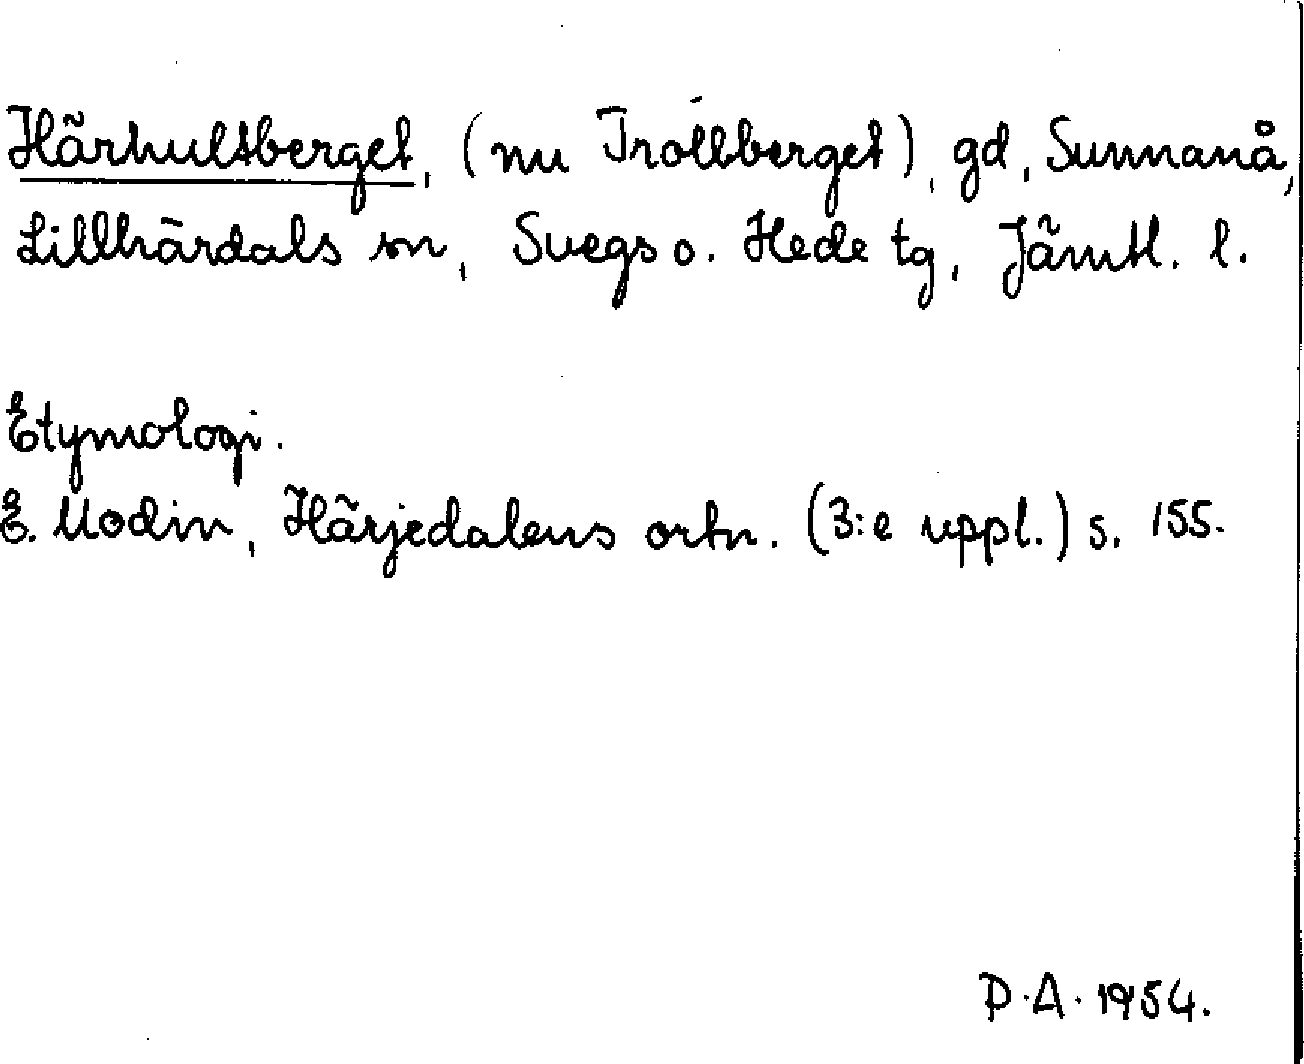 Härhultsberget, (nu Trollberget), gd, Sunnanå,
Lillhärdals sn, Svegs o. Hede tg, Jämtl. l.
Etymologi.
E. Modin, Härjedalens ortn. (3:e uppl.) s. 155.
P.A. 1954.